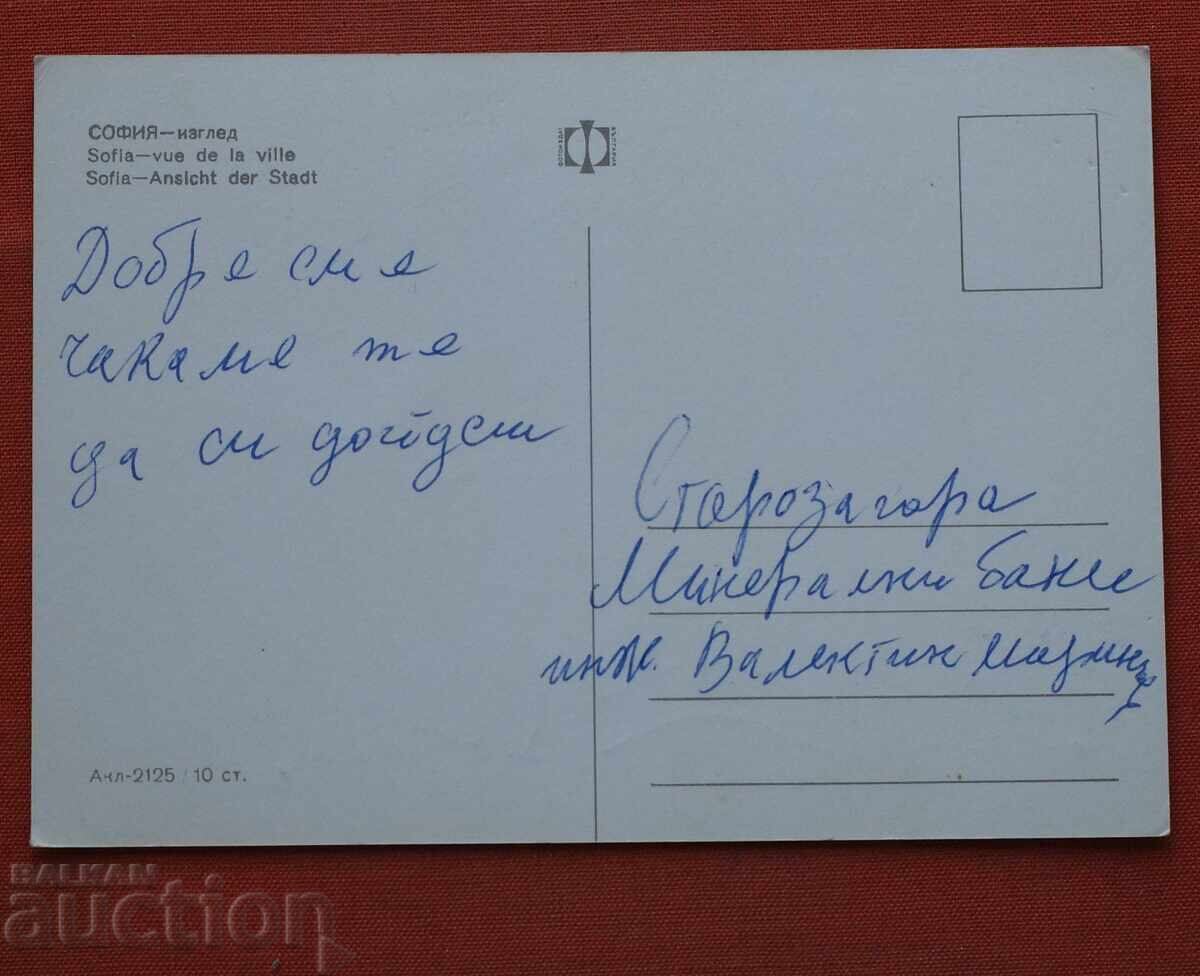 СОФИЯ—изглед
Sofia—vue de la ville
Sofia—Ansicht der Stadt
ФОТОИЗДАТ БЪЛГАРИЯ
Добре сме
чакаме те
да си дойдеш
Старозагора
Минерални бани
инж. Валентин
Акл-2125 / 10 ст.
BALKAN
auction